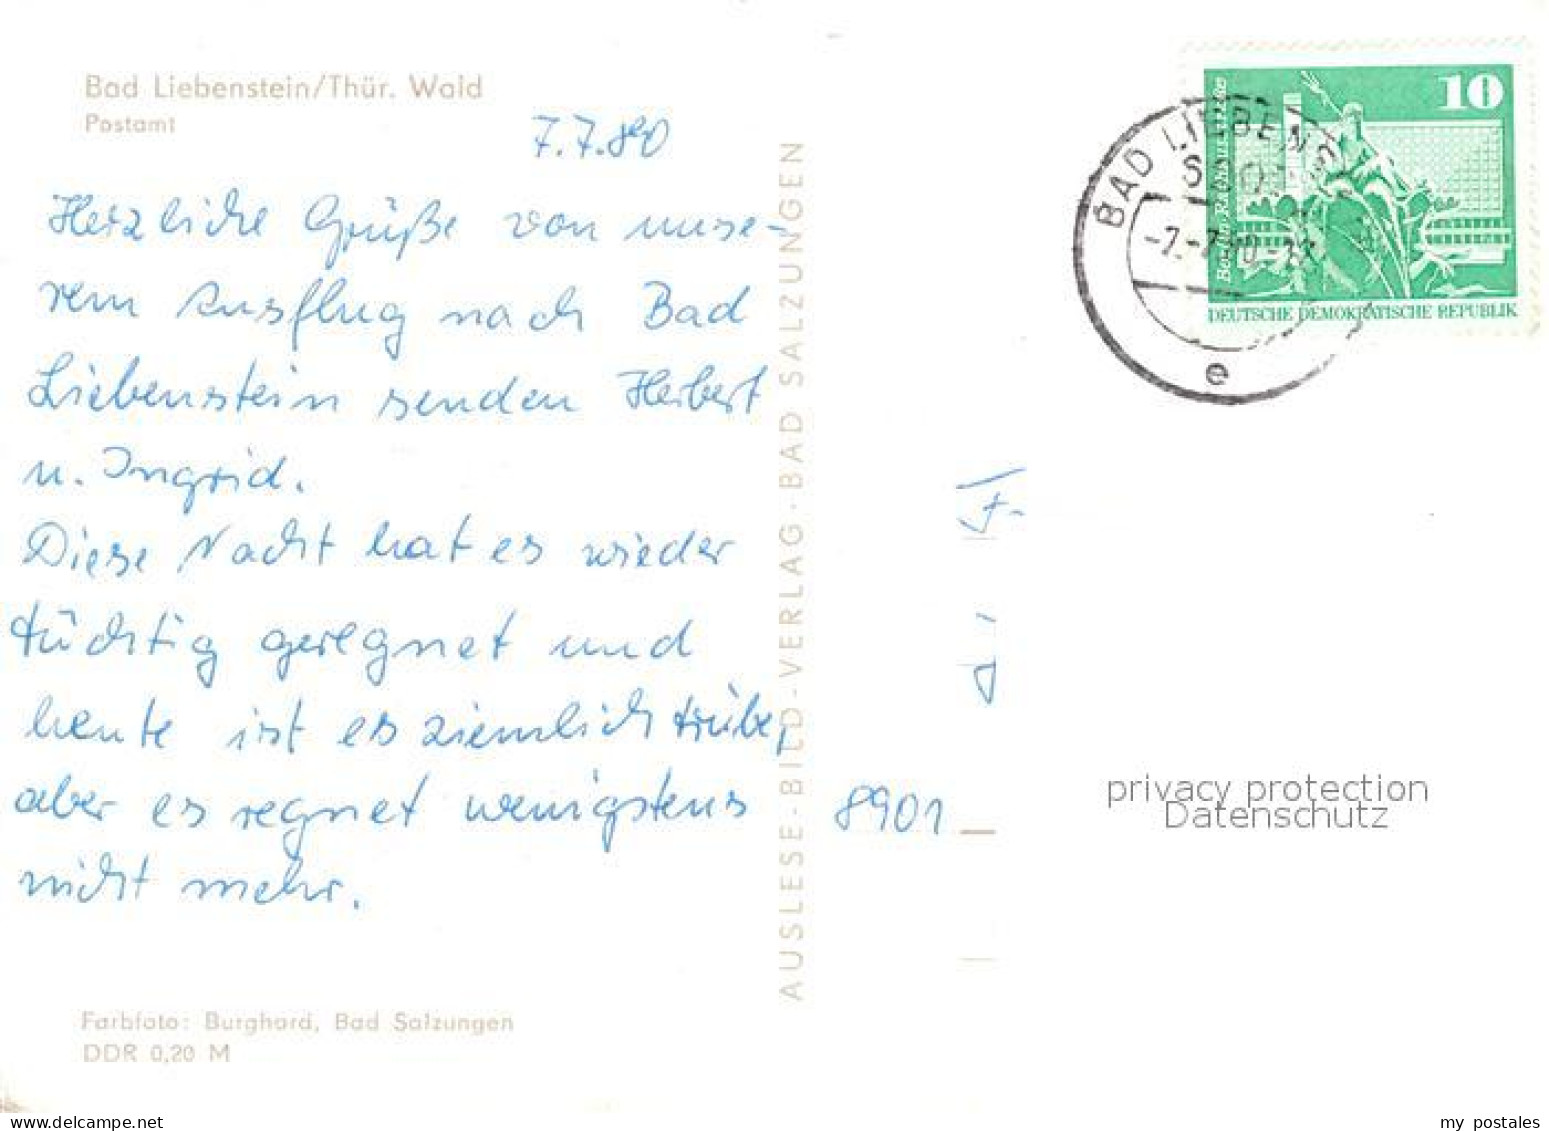 Bad Liebenstein/Thür. Wald
Postamt
7.7.80
Herzliche Grüße von unse-
rem Ausflug nach Bad
Liebenstein senden Herbert
u. Ingrid.
Diese Nacht hat es wieder
tüchtig geregnet und
heute ist es ziemlich trübe,
aber es regnet wenigstens
nicht mehr.
Farbfoto: Burghard, Bad Salzungen
DDR 0,20 M
AUSLESE-BILD-VERLAG·BAD SALZUNGEN
10
DEUTSCHE DEMOKRATISCHE REPUBLIK
BAD LIEBEN
e
8901
privacy protection
Datenschutz
my postales